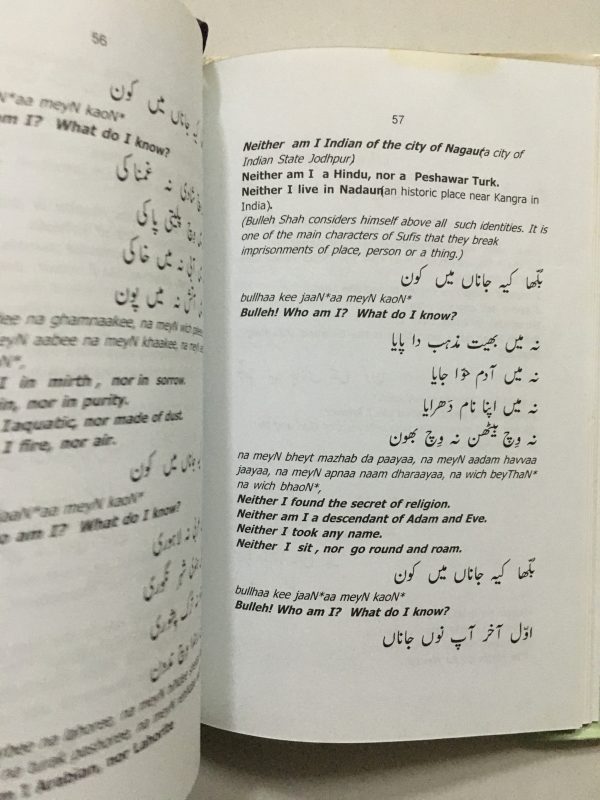 56
میں کون
N*aa meyN kaoN*
am I? What do I know?
نہ غمناکی
پلیتی پاکی
نہ میں خاکی
نہ میں پون
na ghamnaakee, na meyN wich
aabee na meyN khaakee, na
I in mirth, nor in sorrow.
in, nor in purity.
I aquatic, nor made of dust.
I fire, nor air.
جاناں میں کون
jaaN*aa meyN kaoN*
am I? What do I know?
نہ لاہوری
شہر نگوری
پشوری
na lahoree, na meyN
na turak pashoree, na meyN
I Arabian, nor Lahorite
57
Neither am I Indian of the city of Nagaur(a city of
Indian State Jodhpur)
Neither am I a Hindu, nor a Peshawar Turk.
Neither I live in Nadaun(an historic place near Kangra in
India).
(Bulleh Shah considers himself above all such identities. It is
one of the main characters of Sufis that they break
imprisonments of place, person or a thing.)
بلّھا کیہ جاناں میں کون
bullhaa kee jaaN*aa meyN kaoN*
Bulleh! Who am I? What do I know?
نہ میں بھیت مذہب دا پایا
نہ میں آدم حوّا جایا
نہ میں اپنا نام دھرایا
نہ وِچ بیٹھن نہ وِچ بھون
na meyN bheyt mazhab da paayaa, na meyN aadam havvaa
jaayaa, na meyN apnaa naam dharaayaa, na wich beyThaN*
na wich bhaoN*,
Neither I found the secret of religion.
Neither am I a descendant of Adam and Eve.
Neither I took any name.
Neither I sit, nor go round and roam.
بلّھا کیہ جاناں میں کون
bullhaa kee jaaN*aa meyN kaoN*
Bulleh! Who am I? What do I know?
اوّل آخر آپ نوں جاناں